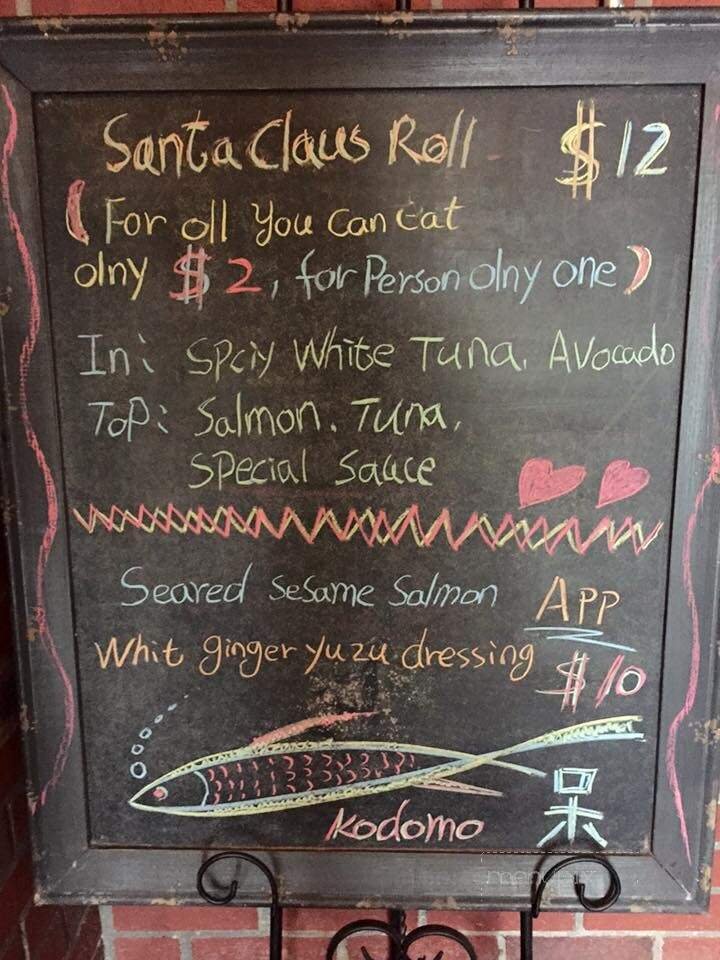 Santa Claus Roll $12
(For all You Can Eat
olny $2, for Person olny one)
In: SPciy White Tuna, Avocado
Top: Salmon. Tuna,
Special Sauce
Seared Sesame Salmon APP
Whit ginger yuzu dressing $10
Kodomo 呆
menupix